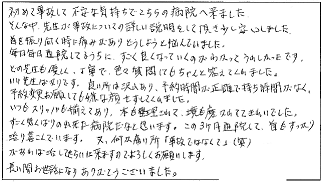 初めて事故して不安な気持ちでこちらの病院へ来ました
そんな中、先生が事故についての詳しい説明をして頂き少し安心しました。
首を振り向く時に痛みがありどうしようと悩んでいました。
毎日毎日通院してもううちに、すごく良くなっていくのがわかってうれしかったです。
どの先生も優しく、丁寧で、色々質問にもちゃんと答えてくれました。
いい先生ばかりです。良い所は沢山あり、予約時間が正確で待ち時間がなく、
予約変更お願いしても嫌な顔一つせずしてくれました。
いつもスリッパも揃えてあり、本も整理されて、環境も整えられていました。
すごく気くばりの出来た病院だなと思います。この3ヶ月通院して、首もすっかり
治り喜んでいます。又、何か痛い所「事故ではなくて」(笑)
があれば治して頂きに来ますのでよろしくお願いします。
長い間お世話になりありがとうございました。